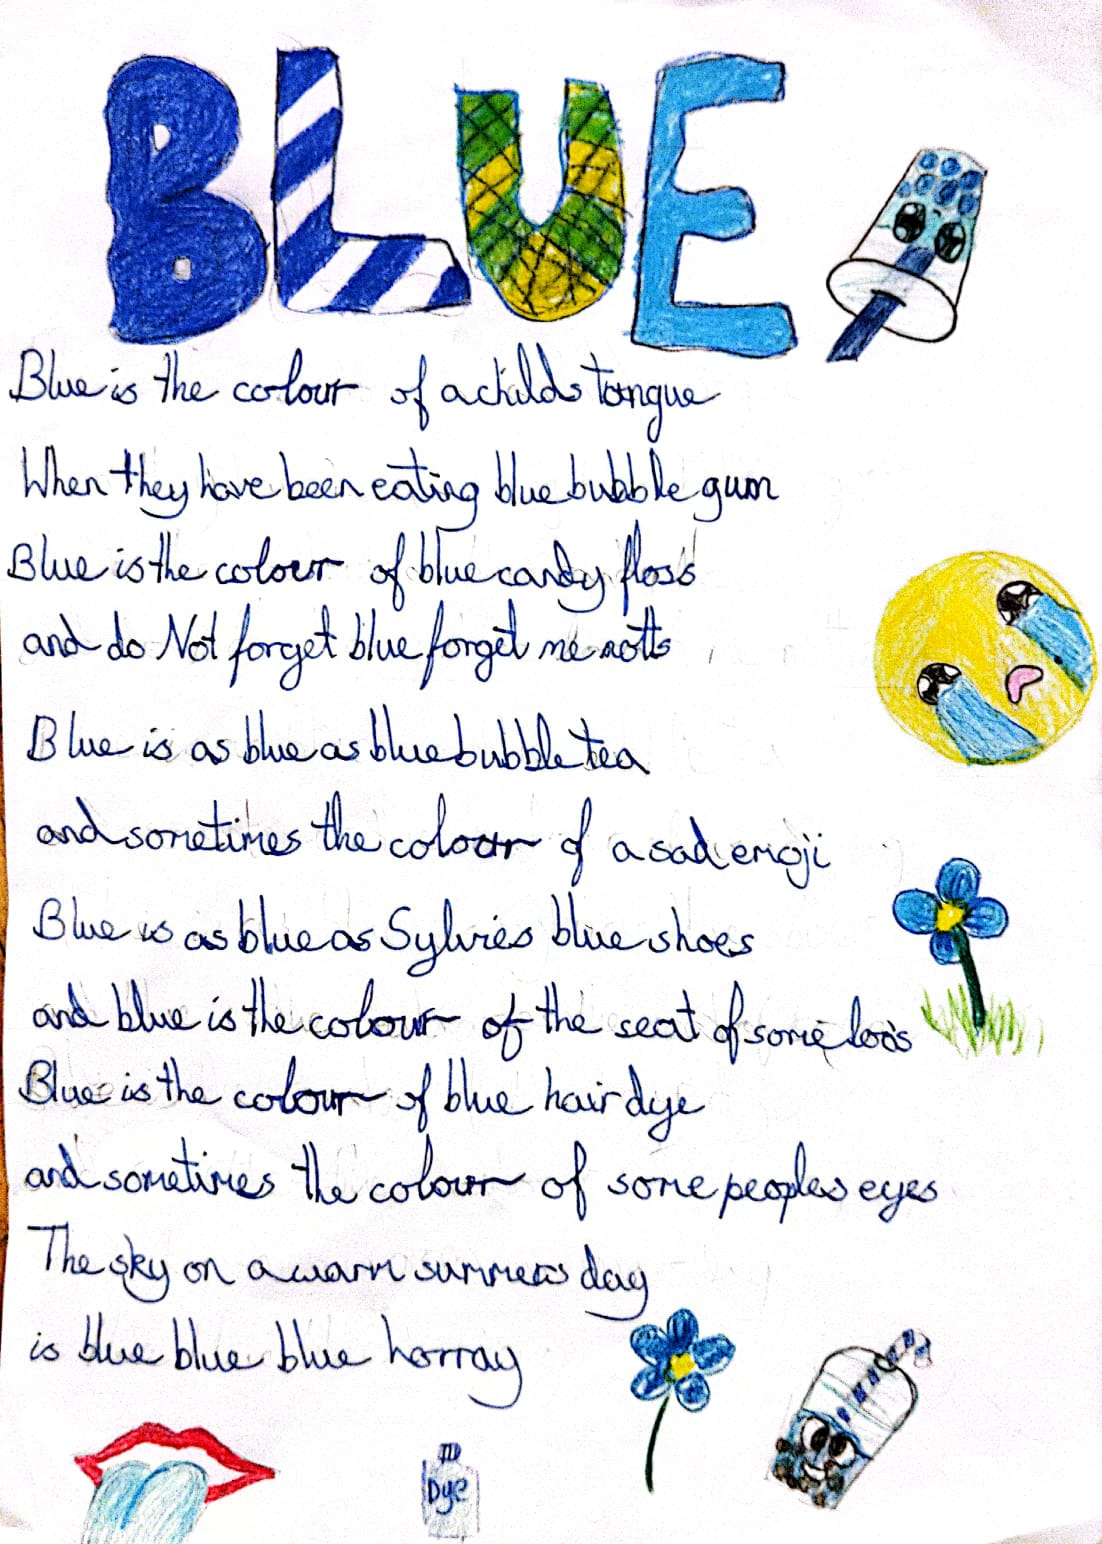 BLUE
Blue is the colour of a childs tongue
When they have been eating blue bubble gum
Blue is the colour of blue candy floss
and do Not forget blue forget me notts
Blue is as blue as blue bubble tea
and sometimes the colour of a sad emoji
Blue is as blue as Sylvies blue shoes
and blue is the colour of the seat of some loos
Blue is the colour of blue hair dye
and sometimes the colour of some peoples eyes
The sky on a warm summers day
is blue blue blue horray
Dye